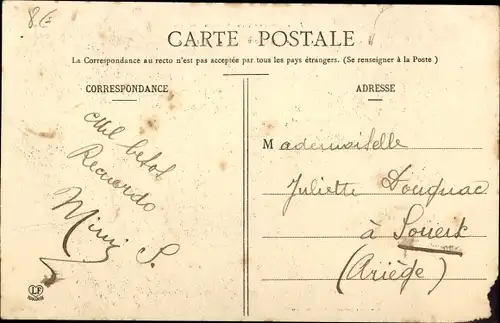 8 €
CARTE POSTALE
La Correspondance au recto n'est pas acceptée par tous les pays étrangers. (Se renseigner à la Poste)
CORRESPONDANCE
ADRESSE
Mil besos
Recuerdo
Mimi S.
Mademoiselle
Juliette
à Soueix
(Ariège)
LF